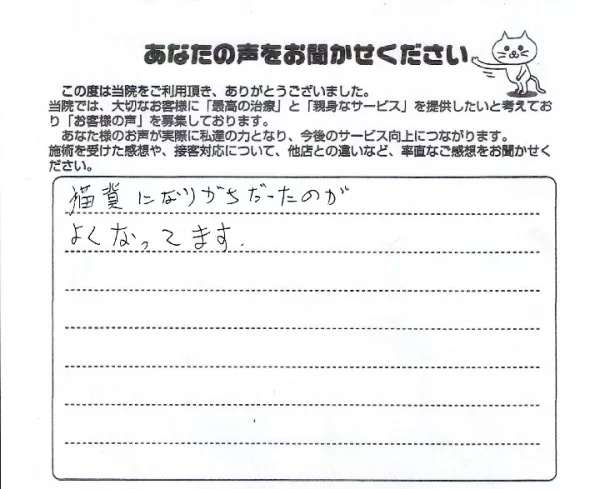 あなたの声をお聞かせください
この度は当院をご利用頂き、ありがとうございました。
当院では、大切なお客様に「最高の治療」と「親身なサービス」を提供したいと考えてお
り「お客様の声」を募集しております。
あなた様のお声が実際に私達の力となり、今後のサービス向上につながります。
施術を受けた感想や、接客対応について、他店との違いなど、率直なご感想をお聞かせく
ださい。
猫背になりがちだったのが
よくなってます.